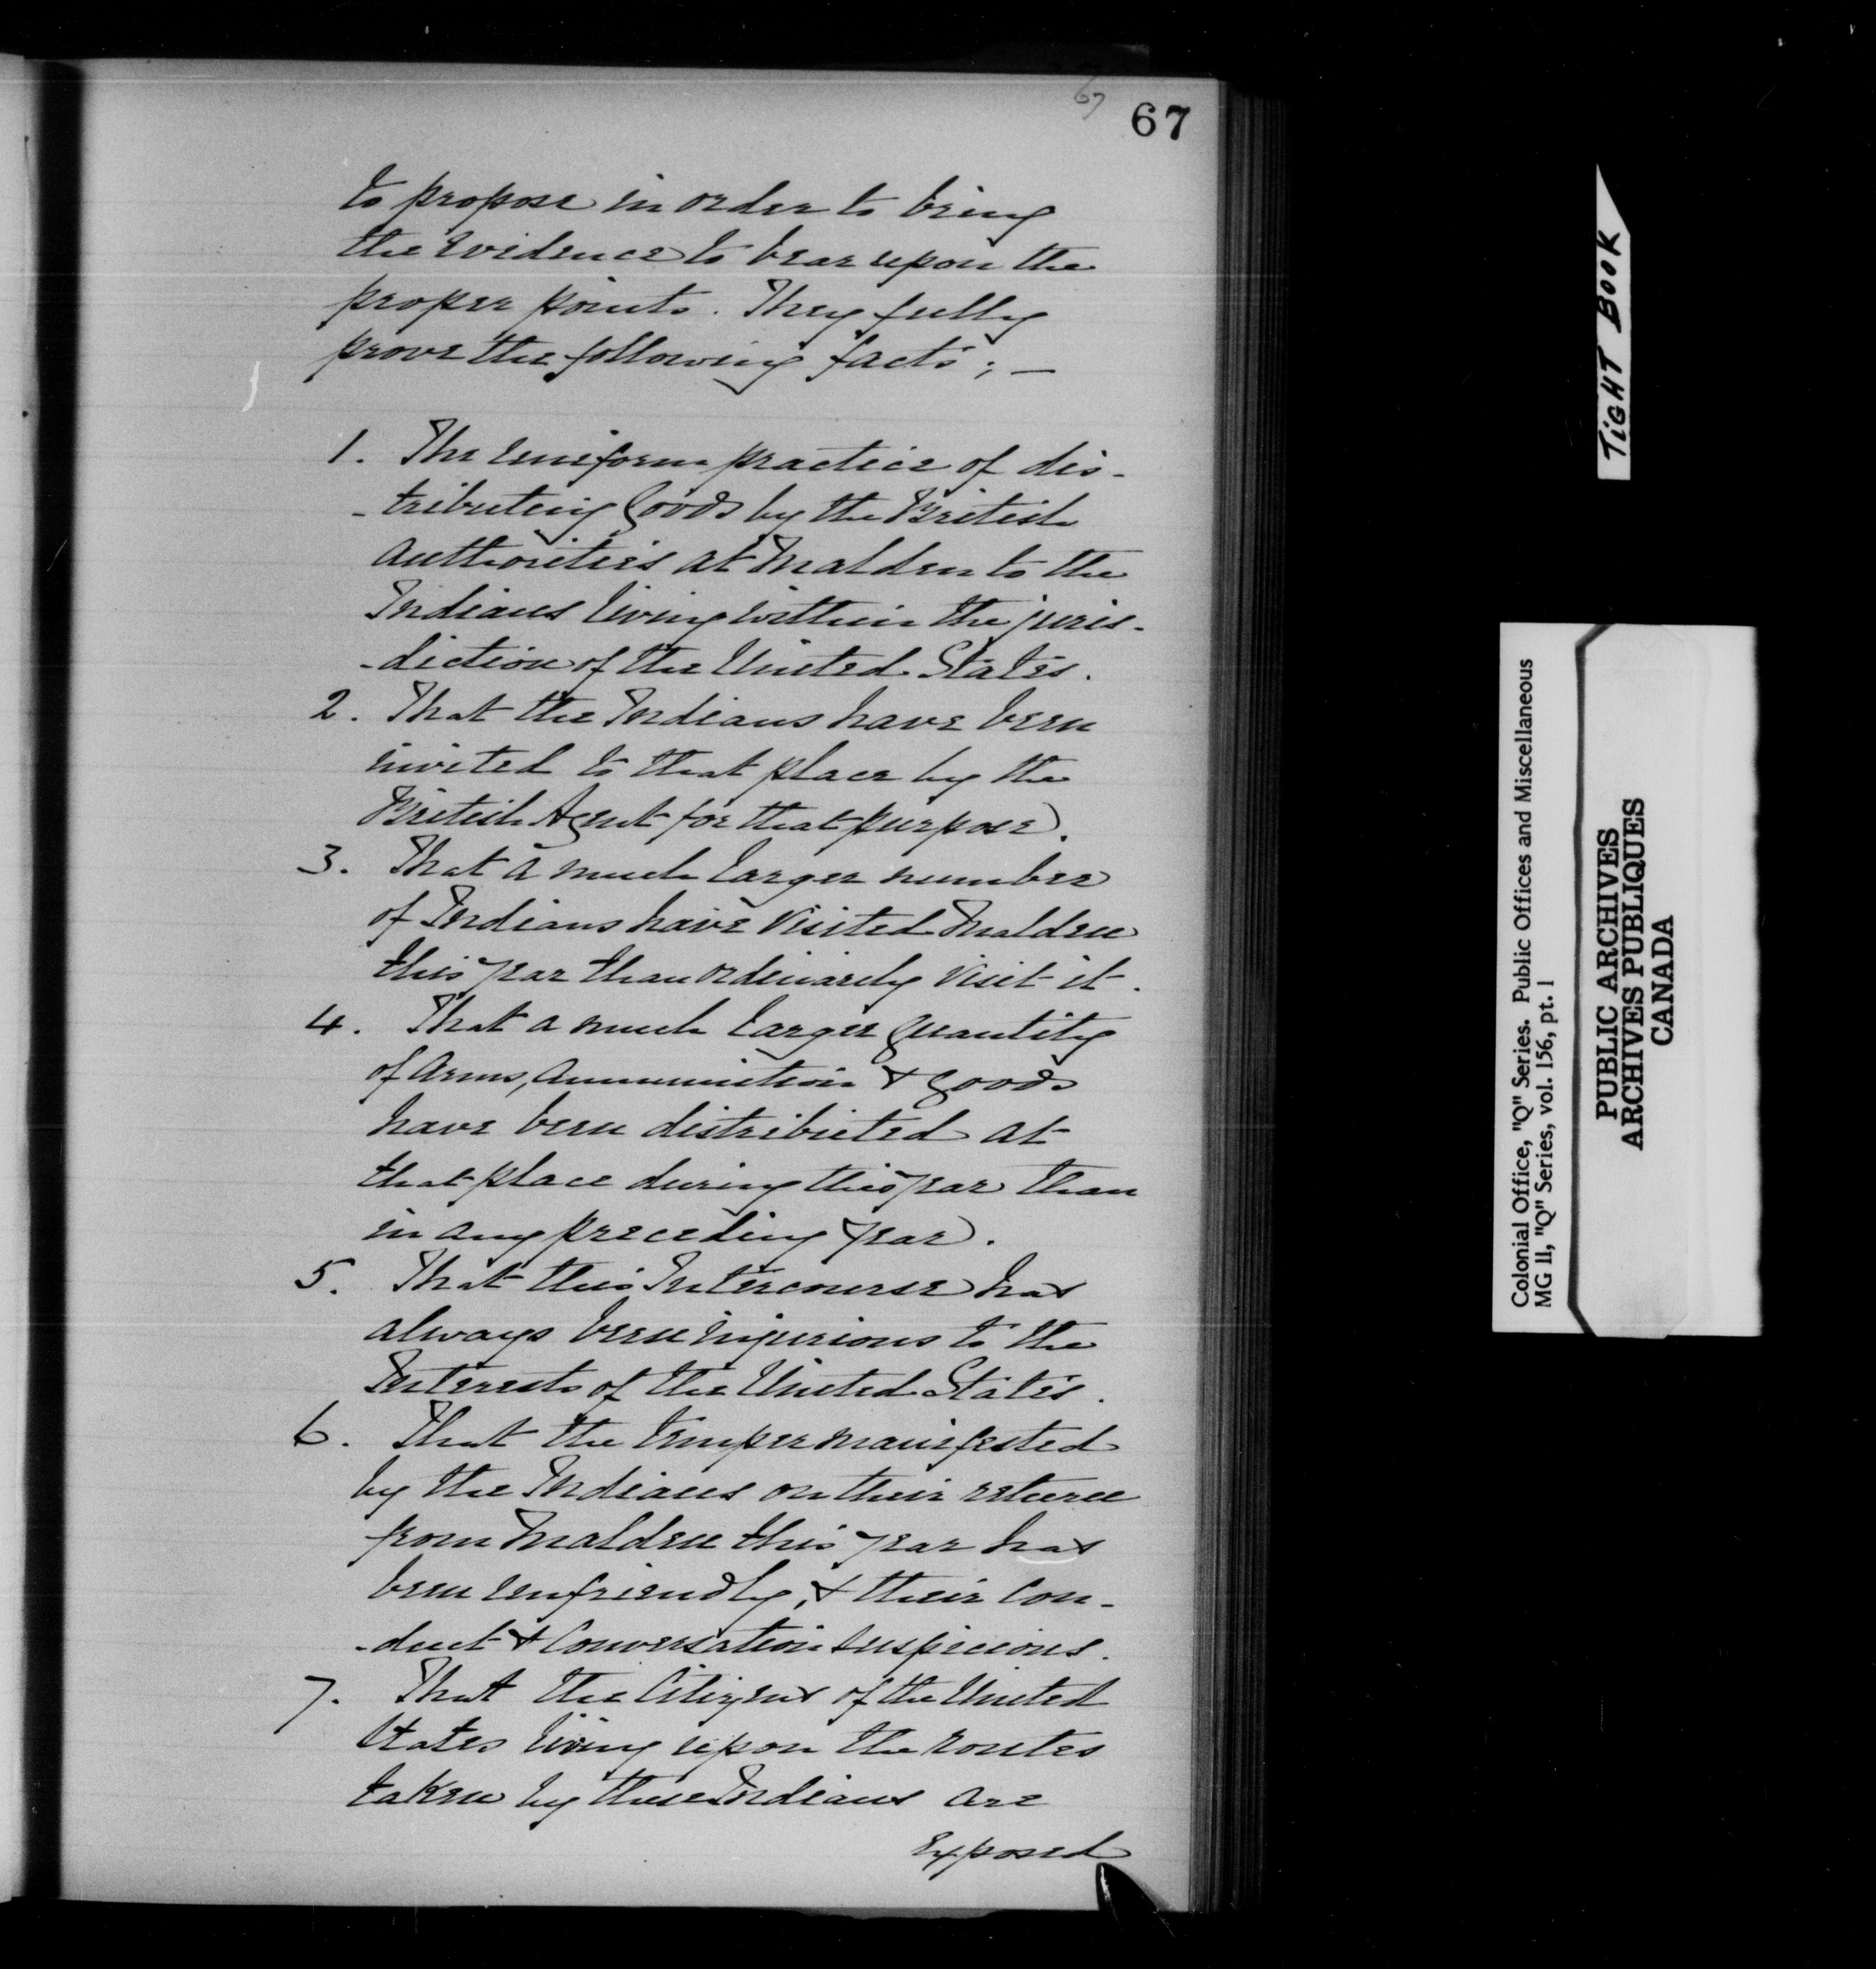 67
67
to propose in order to bring
the Evidence to bear upon the
proper points. They fully
prove the following facts; —
1. The uniform practice of dis-
-tributing Goods by the British
Authorities at Malden to the
Indians living within the juris-
-diction of the United States.
2. That the Indians have been
invited to that place by the
British Agent for that purpose.
3. That a much larger number
of Indians have visited Malden
this year than ordinarily visit it.
4. That a much larger quantity
of Arms, Ammunition & Goods
have been distributed at
that place during this year than
in any preceding year.
5. That this Intercourse has
always been injurious to the
Interests of the United States.
6. That the temper manifested
by the Indians on their return
from Malden this year has
been unfriendly, & their Con-
-duct & Conversation suspicious.
7. That the Citizens of the United
States living upon the routes
taken by these Indians are
Exposed
TIGHT BOOK
Colonial Office, "Q" Series. Public Offices and Miscellaneous
MG 11, "Q" Series, vol. 156, pt. 1
PUBLIC ARCHIVES
ARCHIVES PUBLIQUES
CANADA